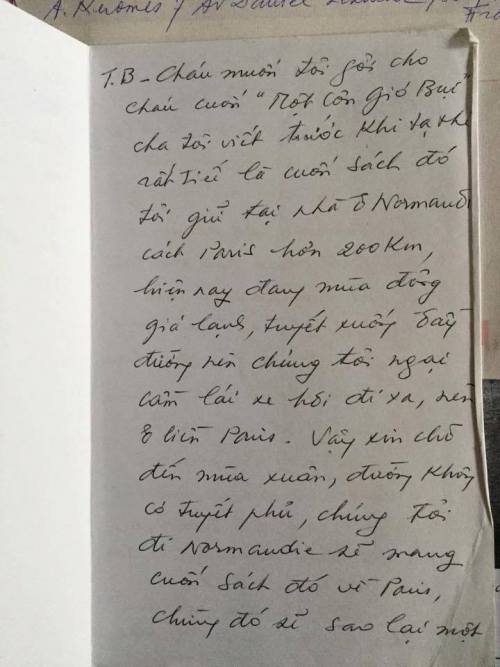 A. Keromes / Av Daniel
T.B - Cháu muốn tôi gởi cho
cháu cuốn "Một Cơn Gió Bụi"
cha tôi viết trước khi tạ thế
rất tiếc là cuốn sách đó
tôi giữ tại nhà ở Normandi
cách Paris hơn 200 Km,
hiện nay đang mùa đông
giá lạnh, tuyết xuống đầy
đường nên chúng tôi ngại
cầm lái xe hơi đi xa, nên
ở liền Paris. Vậy xin chờ
đến mùa xuân, đường không
có tuyết phủ, chúng tôi
đi Normandie sẽ mang
cuốn sách đó về Paris,
chừng đó sẽ sao lại một